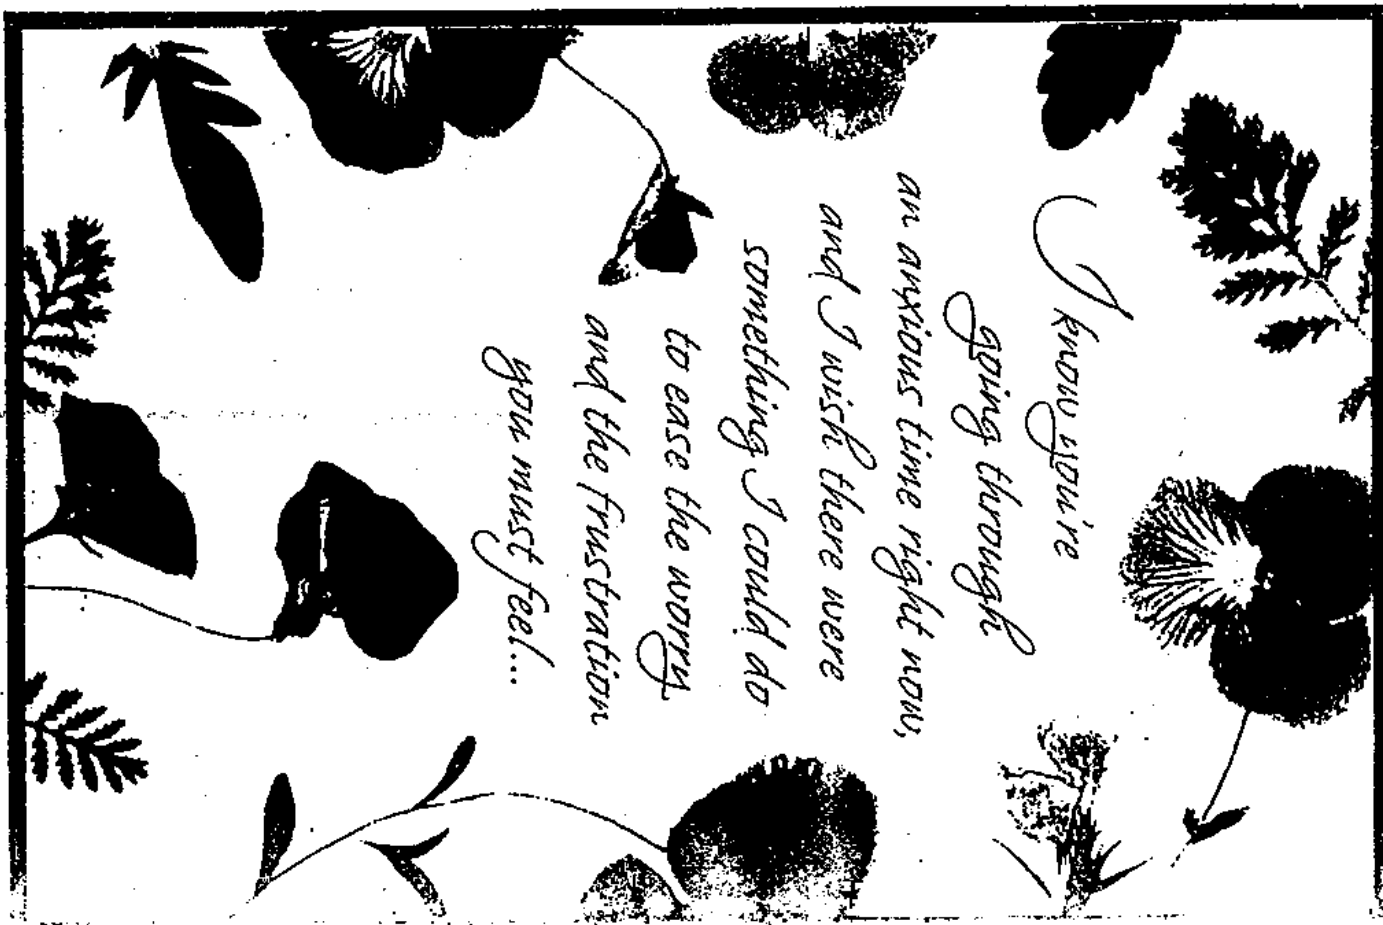 I know you're
going through
an anxious time right now,
and I wish there were
something I could do
to ease the worry
and the frustration
you must feel...